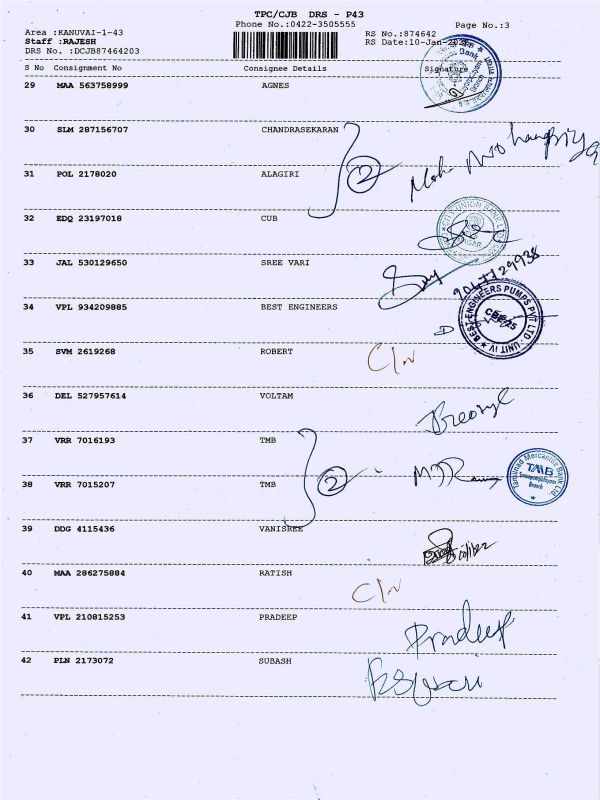 TPC/CJB DRS - P43
Phone No.:0422-3505555
Page No.:3
Area :KANUVAI-1-43
RS No.:874642
Staff :RAJESH
RS Date:10-Jan-
DRS No. :DCJB87464203
S No Consignment No Consignee Details Signature
Bank
29 MAA 563758999 AGNES
30 SLM 287156707 CHANDRASEKARAN
2
31 POL 2178020 ALAGIRI
32 EDQ 23197018 CUB
CITY UNION BANK LTD
33 JAL 530129650 SREE VARI
34 VPL 934209885 BEST ENGINEERS
BEST ENGINEERS PUMPS PVT LTD - UNIT IV
CBE-25
35 SVM 2619268 ROBERT
C/N
36 DEL 527957614 VOLTAM
37 VRR 7016193 TMB
2
Tamilnad Mercantile Bank Ltd.
TMB
Branch
38 VRR 7015207 TMB
39 DDG 4115436 VANISREE
40 MAA 286275884 RATISH
C/N
41 VPL 210815253 PRADEEP
Pradeep
42 PLN 2173072 SUBASH